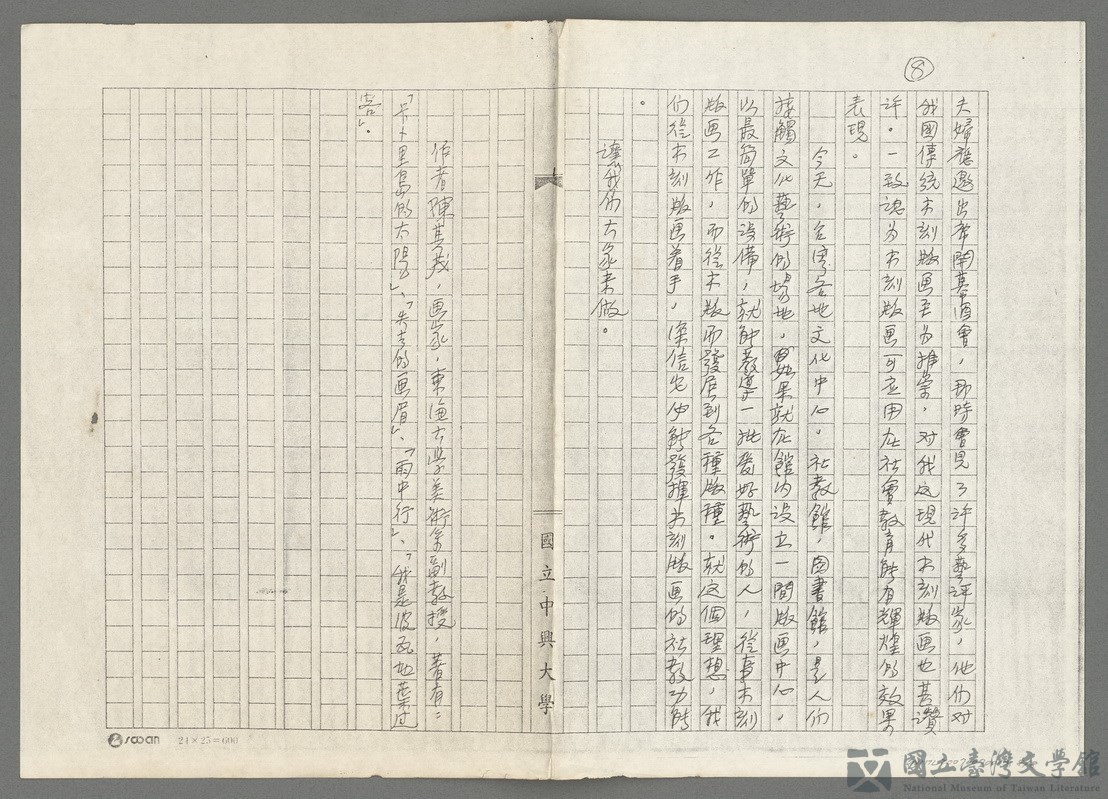 ⑧
夫婦應邀出席開幕酒會，那時會見了許多藝評家，他们对
我國傳統木刻版画至为推崇，对我这現代木刻版画也甚讚
许。一致認为木刻版画可应用在社會教育能有輝煌的效果
表現。
今天，台灣各地文化中心。社教館，図書館，是人们
接觸文化藝術的場地，如果就在館内设立一間版画中心，
以最简單的设備，就能教導一批爱好藝術的人，從事木刻
版画工作，而從木版而發展到各種版種。就这個理想，我
们從木刻版画着手，深信它能發揮木刻版画的社教功能
。
讓我们大家来做。
作者陳其茂，画家，東海大学美術系副教授，著有：
「卡卜里島的太陽」、「失去的画眉」、「雨中行」、「我是沒有地棄过
害」。
國立中興大學
SOOAN 24×25=600
國立臺灣文學館
National Museum of Taiwan Literature